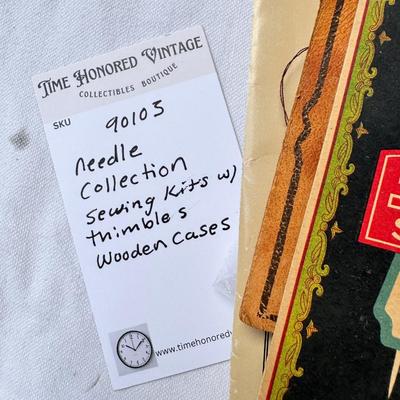 TIME HONORED VINTAGE
COLLECTIBLES BOUTIQUE
SKU
90103
needle
Collection
Sewing Kits w/
thimbles
Wooden Cases
www.timehonored